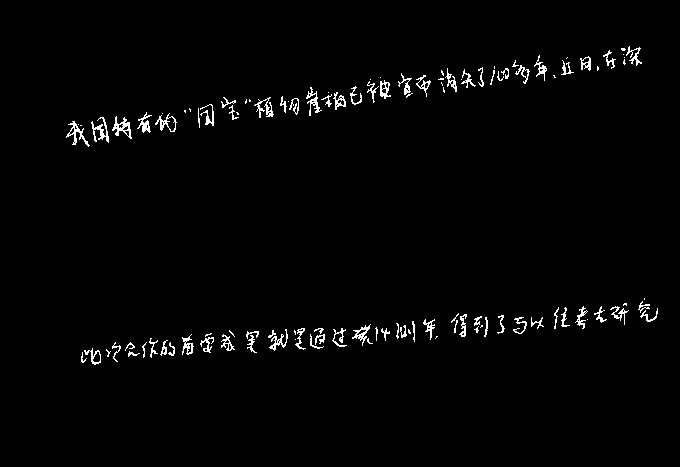 我国特有的“国宝”植物崖柏已被宣布消失了100多年,近日,在深
此次合作的首要成果就是通过碳14测年,得到了与以往考古研究